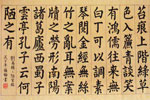 苔痕上階綠草
色入簾青談笑
有鴻儒往來無
白丁可以調素
琴閱金經無絲
竹之亂耳無案
牘之勞形南陽
諸葛廬西蜀子
雲亭孔子云何
陋之有